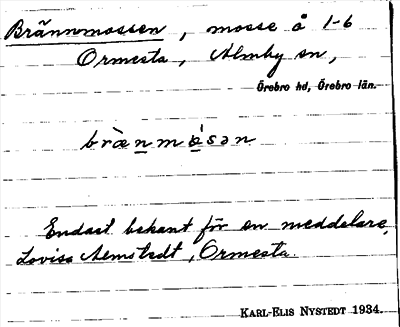 Brännmossen, mosse å 1-6
Ormesta, Almby sn,
Örebro hd, Örebro län.
bræ̀nmå̀sən
Endast bekant för en meddelare,
Lovisa Almstedt, Ormesta.
KARL-ELIS NYSTEDT 1934.